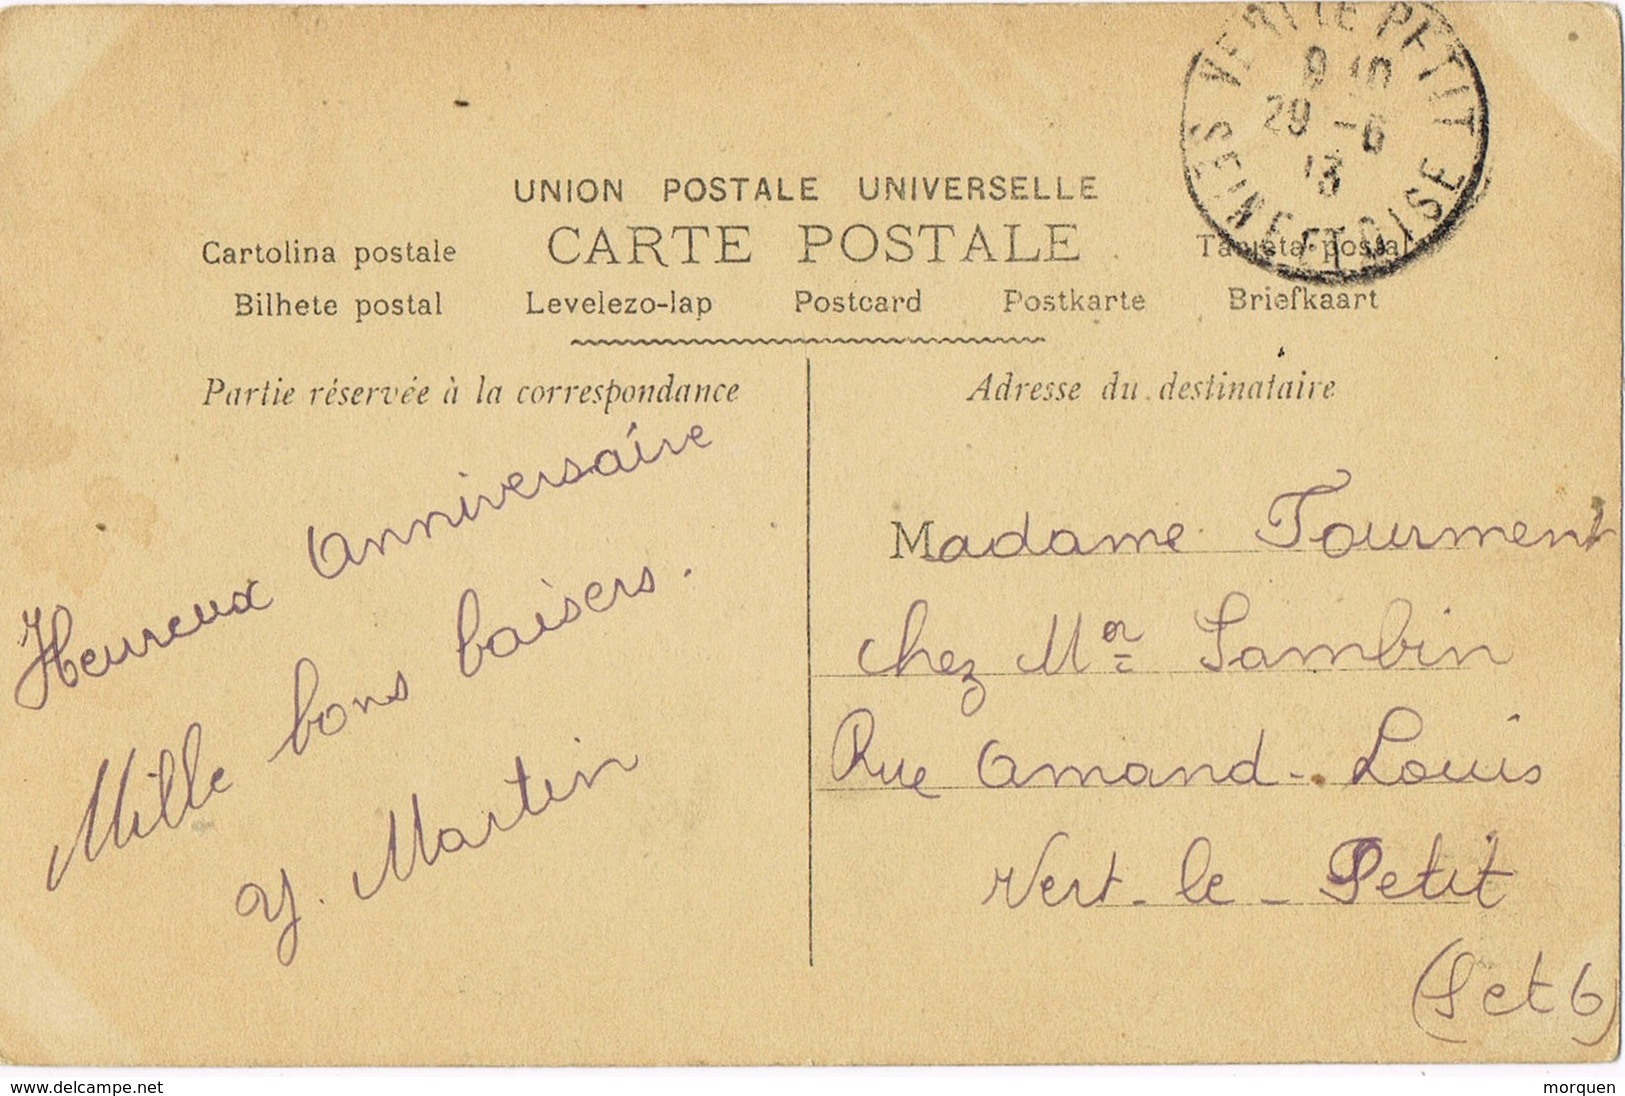 VERT LE PETIT
9 10
29 -6
13
SEINE ET OISE
UNION POSTALE UNIVERSELLE
CARTE POSTALE
Cartolina postale
Tarjeta postal
Bilhete postal Levelezo-lap Postcard Postkarte Briefkaart
Partie réservée à la correspondance
Heureux Anniversaire
Mille bons baisers.
Y. Martin
Adresse du destinataire
Madame Tourment
chez Mr Sambin
Rue Amand-Louis
Vert-le-Petit
(S et O)
www.delcampe.net
morquen